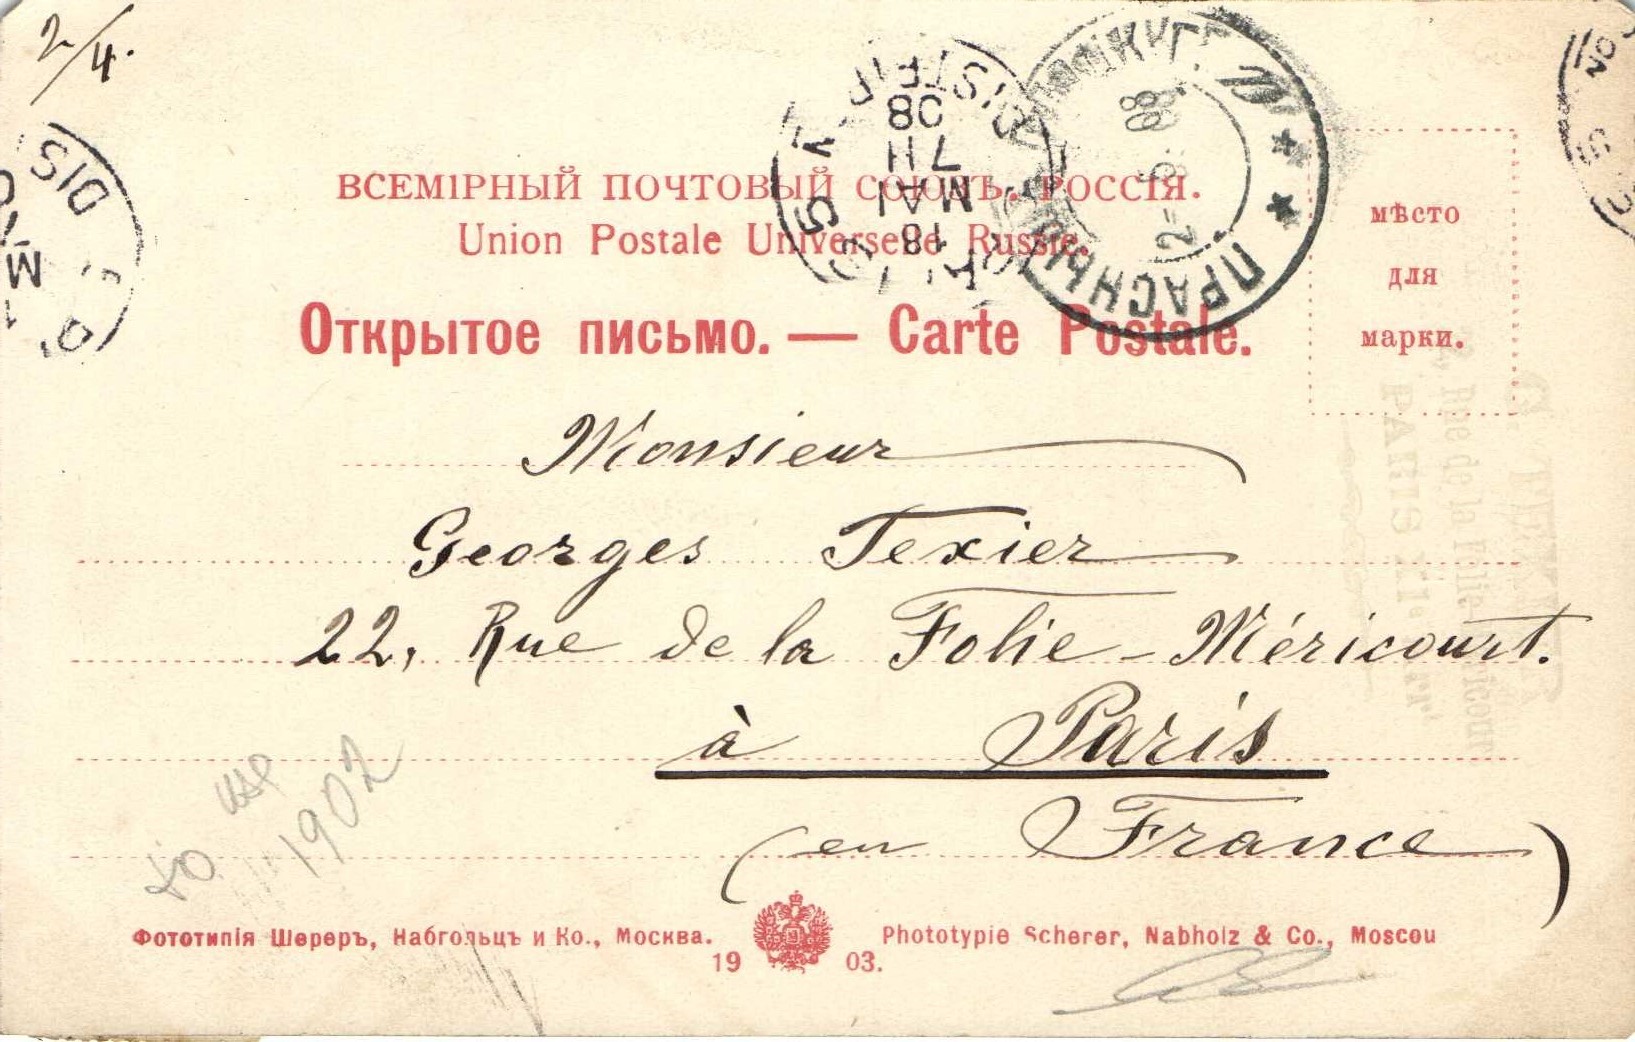 2/4.
ВСЕМІРНЫЙ ПОЧТОВЫЙ СОЮЗЪ. РОССІЯ.
Union Postale Universelle Russie.
Открытое письмо. — Carte Postale.
мѣсто
для
марки.
18
MAI
7H
08
2-5.08
Monsieur
Georges Texier
22, Rue de la Folie-Méricourt.
à Paris
(en France)
1902
Фототипія Шереръ, Набгольцъ и Ко., Москва.
Phototypie Scherer, Nabholz & Co., Moscou
19 03.
G. TEXIER
Rue de la Folie Méricourt
PARIS XIe